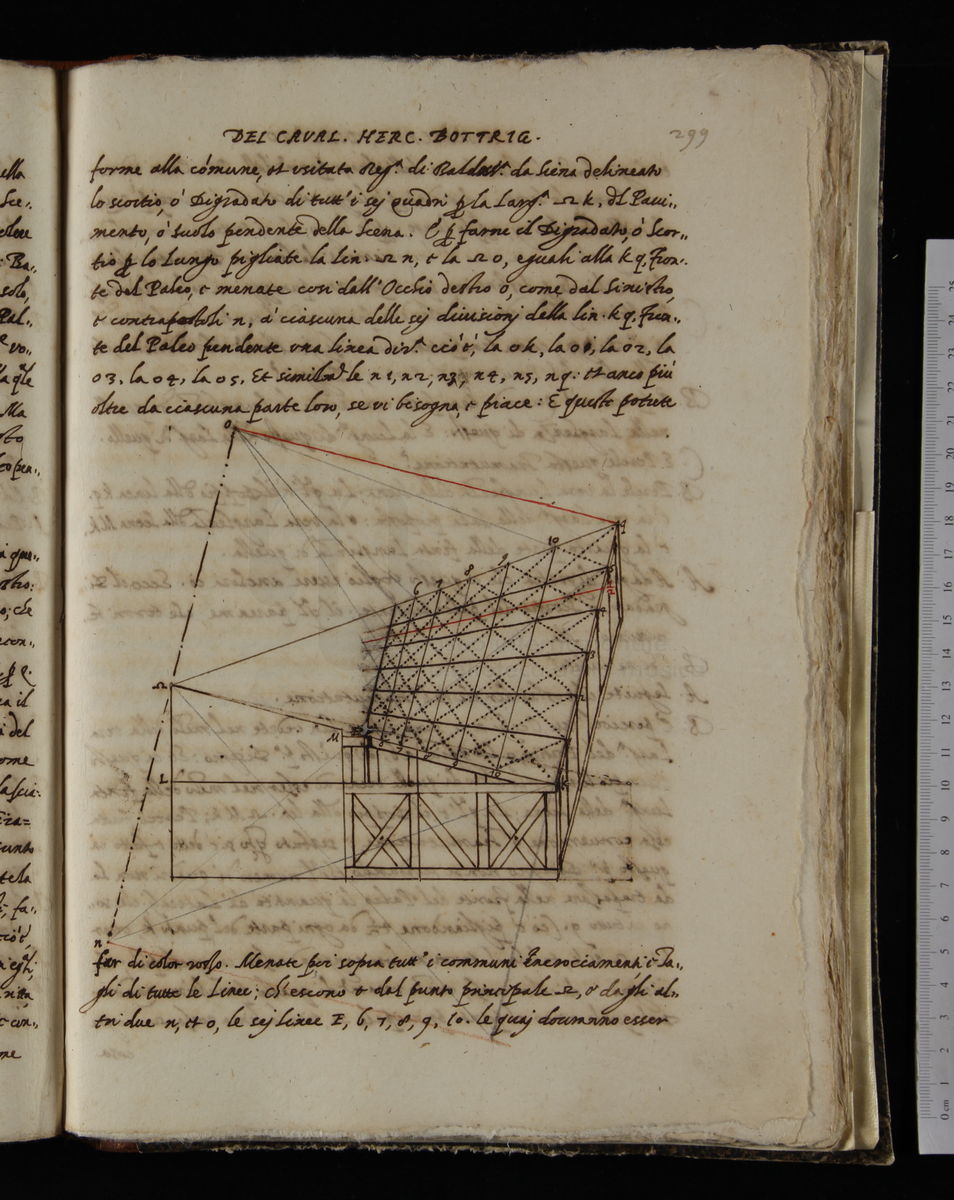 DEL CAVAL. HERC. BOTTRIG.
299
forme alla cómune, et usitata Reg.ª di Baldass.re da Siena delineato
lo scortio, ò Digradato di tutt'i sej quadri p la Larg.ª Ω k, dl Pavi,,
mento, ò suolo pendente della Scena. E p farne il Digradato, ò Scor,,
tio p lo Lungo pigliate la lin: Ω n, e la Ω o, eguali alla k q, Fron,,
te del Palco, e menate cosi dall'Occhio destro o, come dal Sinistro,
e contrapostoli n, à ciascuna delle sej divisionj della lin. k q, Fron,,
te del Palco pendente una linea dir.ª ció è, la o k, la o 1, la o 2, la
o 3, la o 4, la o 5, Et le n 1, n 2, n 3, n 4, n 5, n q: et anco piu
oltre da ciascuna parte loro, se vi bisogna, e piace: E queste potrete
o
q
10
9
8
7
6
5
4
3
2
Ω
M
k
L
n
far di color rosso. Menate poi sopra tutt'i communi Encrocciamenti e Ta,,
gli di tutte le Linee; ch'escono e dal punto principale Ω, o dagli al,,
tri due n, et o, le sej linee Z, 6, 7, 8, 9, 10. le quaj douranno esser